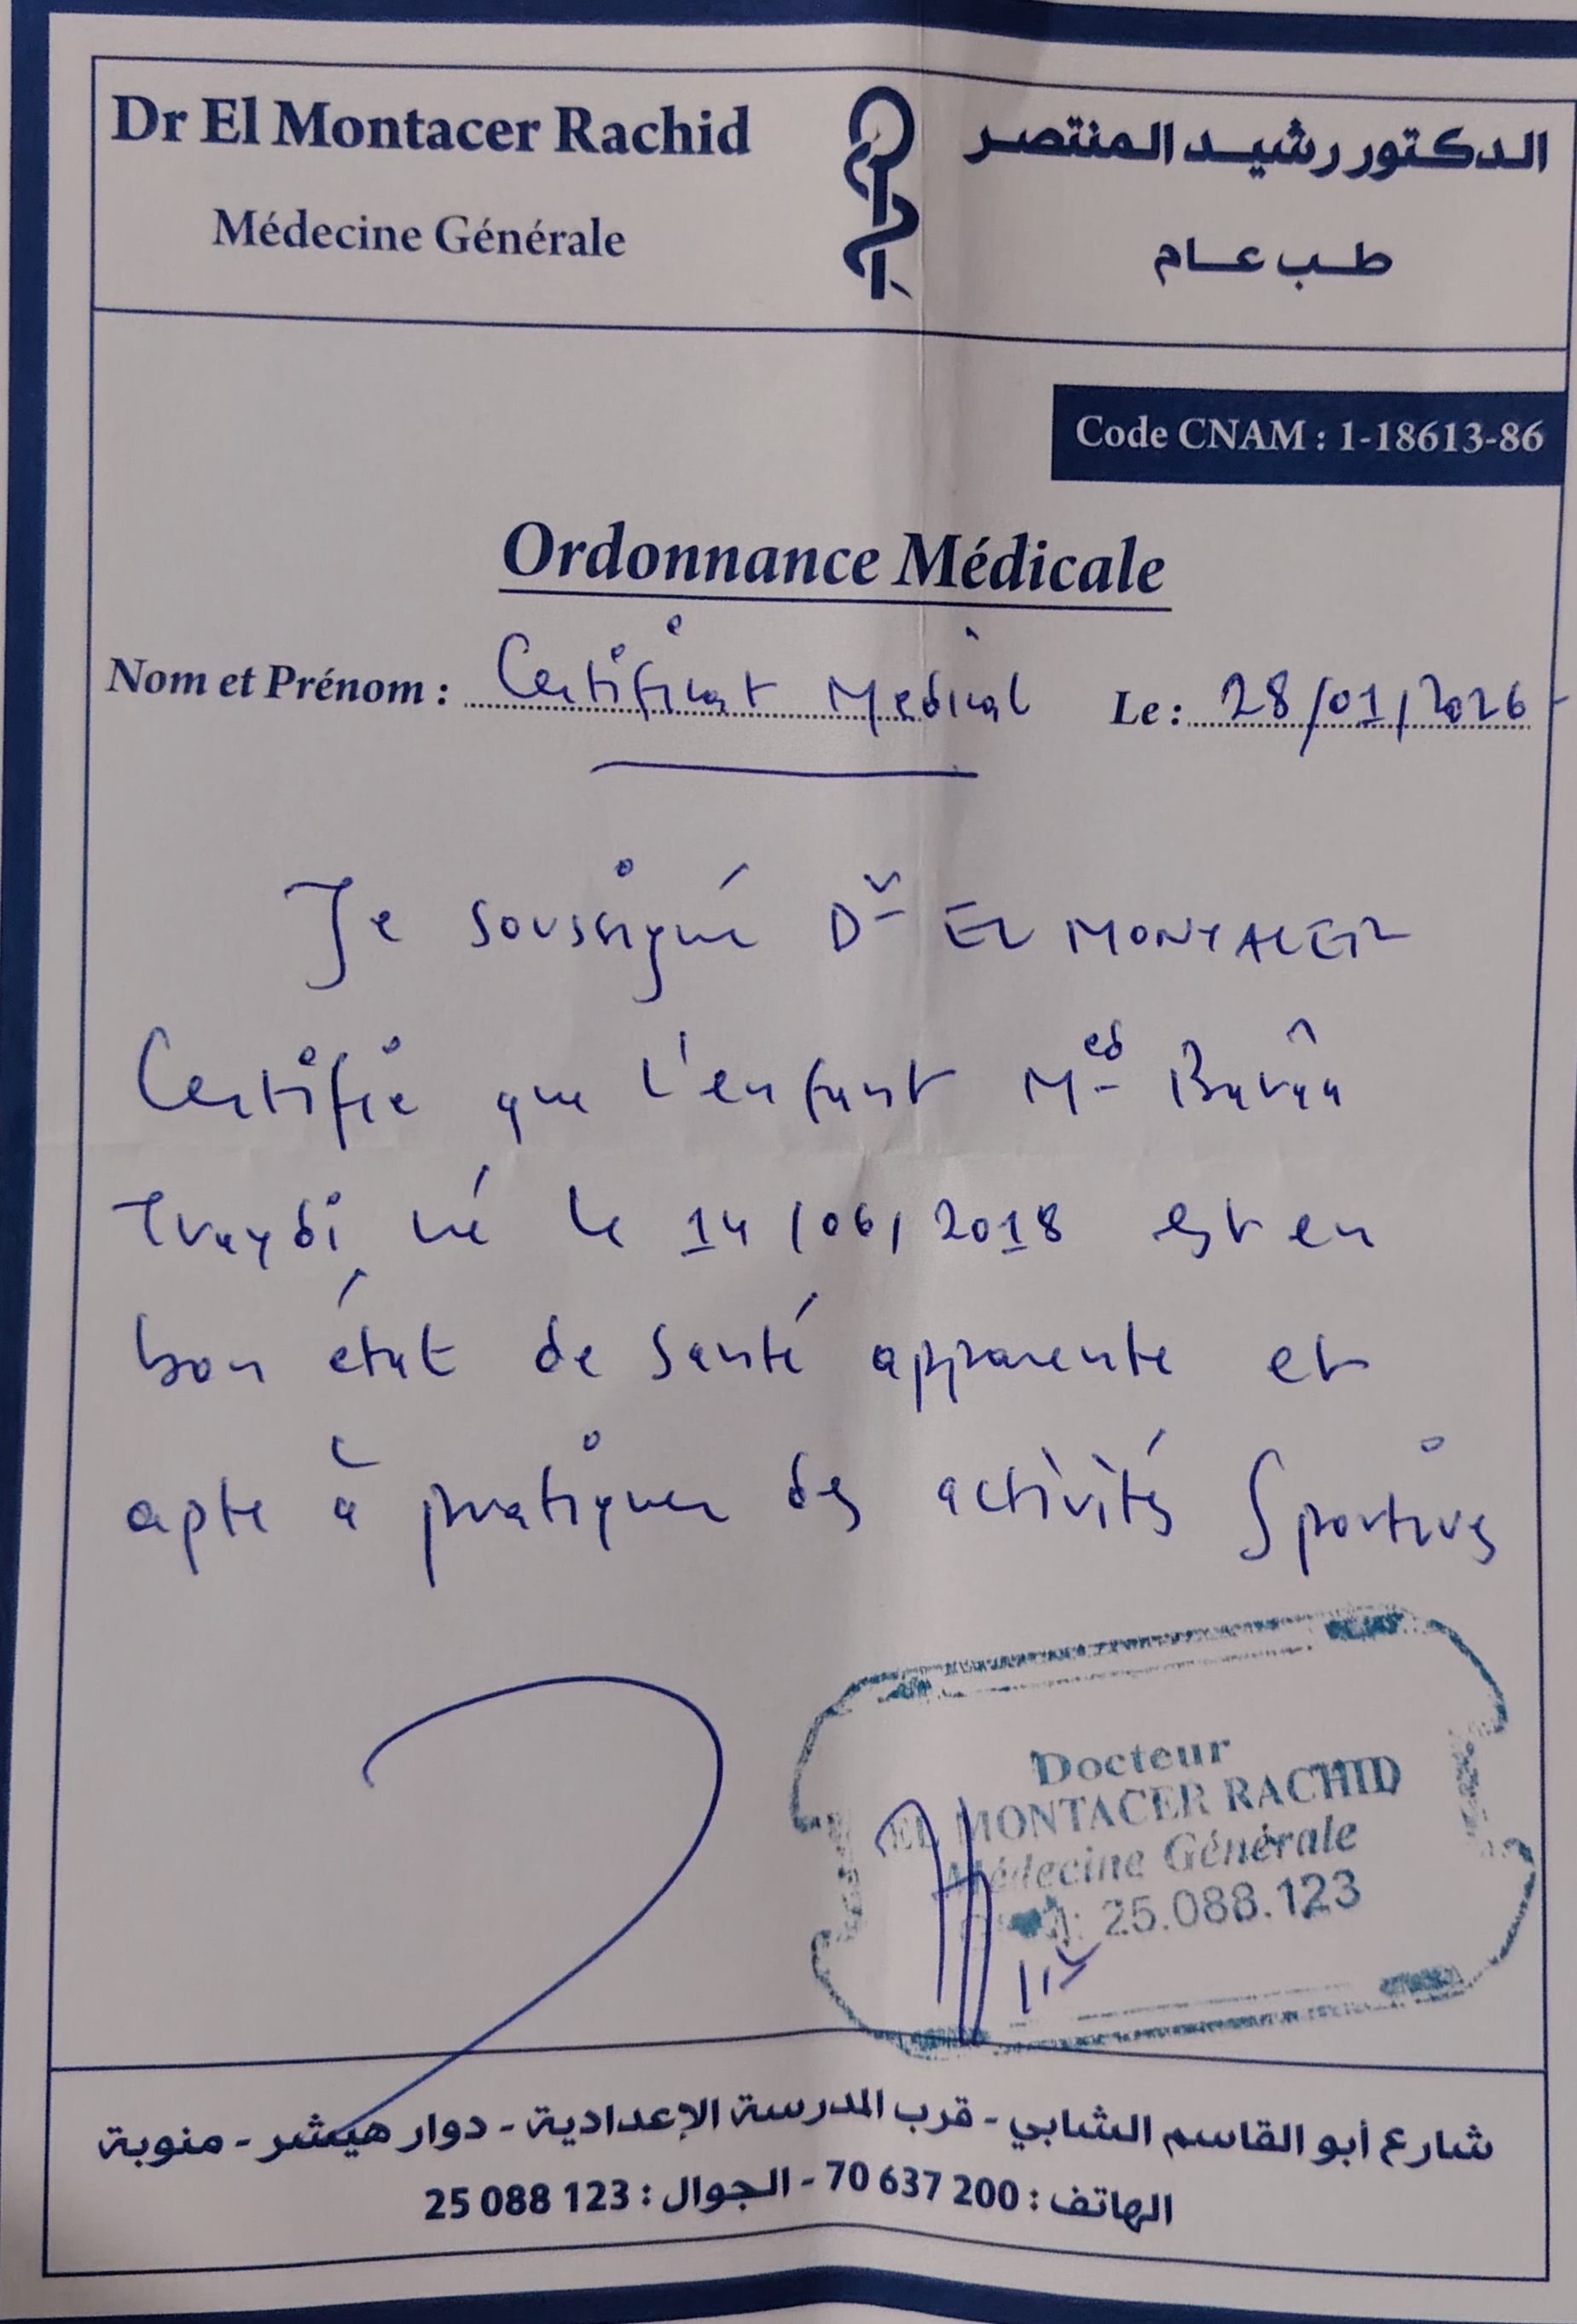 Dr El Montacer Rachid
Médecine Générale
الدكتور رشيد المنتصر
طب عام
Code CNAM : 1-18613-86
Ordonnance Médicale
Nom et Prénom : Certificat Medical Le : 28/01/2026
Je soussigné Dr EL MONTACER
Certifie que l'enfant Med
né le 14/06/2018 est en
bon état de santé apparente et
apte à pratiquer des activités Sportives
Docteur
EL MONTACER RACHID
Médecine Générale
25.088.123
شارع أبو القاسم الشابي - قرب المدرسة الإعدادية - دوار هيشر - منوبة
الهاتف : 200 637 70 - الجوال : 123 088 25